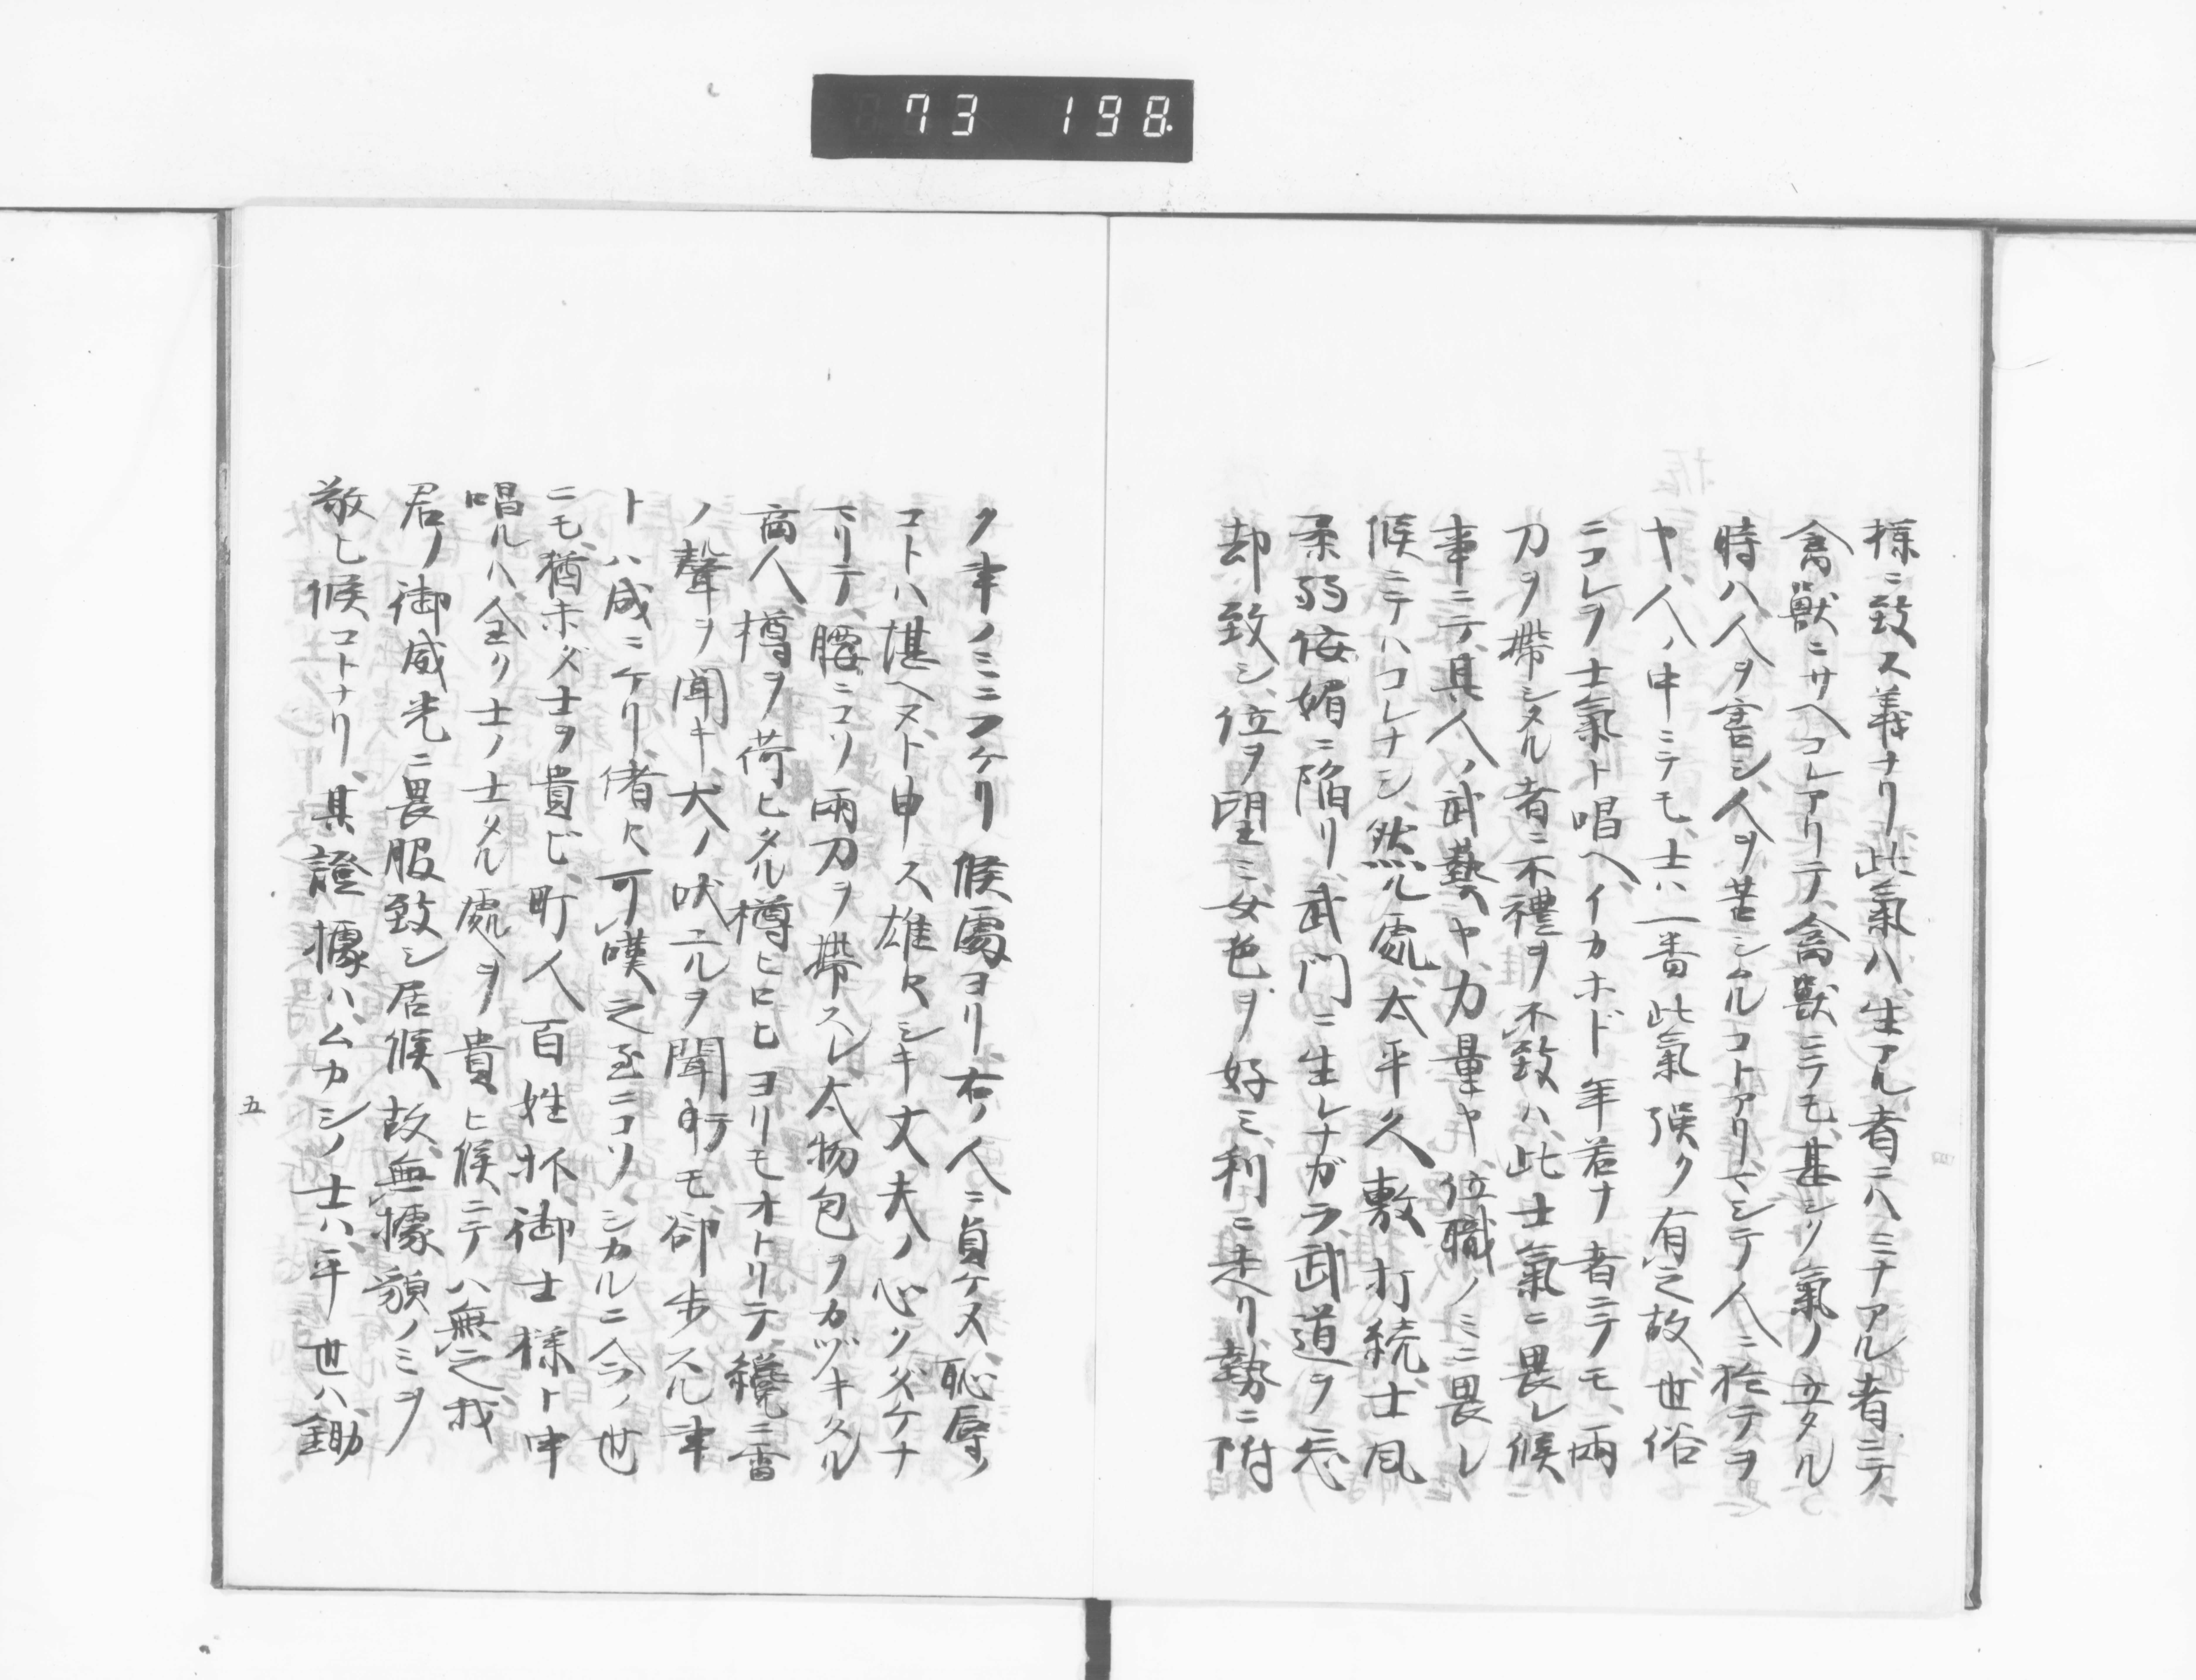 73 198
様ニ致ス義ナリ此氣ハ、生アル者ニハミナアル者ニテ、
禽獸ニサヘコレアリテ、禽獸ニテモ甚シク氣ノ立タル
時ハ人ヲ害シ、人ヲ苦シムルコトアリ、マシテ人ニ於テヲ
ヤ、人ノ中ニテモ、士ハ一番此氣强ク有之故、世俗
ニコレヲ士氣ト唱ヘ、イカホド年若ナ者ニテモ、兩
刀ヲ帶シタル者ニ不禮ヲ不致ハ、此士氣ニ畏レ候
事ニテ、其人ノ武藝ヤ力量ヤ位職ノミニ畏レ
候ニテハコレナシ、然ル處太平久敷打続、士風
柔弱侫媚ニ陥リ、武門ニ生レナガラ、武道ヲ忘
却致シ、位ヲ望ミ、女色ヲ好ミ、利ニ走リ、勢ニ附
ク事ノミニフケリ候處ヨリ、右ノ人ニ負ケヌ、恥辱ノ
コトハ堪ヘヌト申ス雄々シキ丈夫ノ心クダケナ
マリテ、腰ニコソ兩刀ヲ帶スレ、太物包ヲカヅキタル
商人、樽ヲ荷ヒタル樽ヒロヒヨリモオトリテ、纔ニ雷
ノ聲ヲ聞キ、犬ノ吠ユルヲ聞テモ、卻歩スル事
トハ成ニケリ、偖々可嘆之至ニコソ、シカルニ今ノ世
ニモ、猶ホダ士ヲ貴ビ、町人百姓抔、御士様ト申
唱ルハ、全ク士ノ士タル處ヲ貴ヒ候ニテハ無之、我
君ノ御威光ニ畏服致シ居候故、無據貌ノミヲ
敬ヒ候コトナリ、其證據ハ、ムカシノ士ハ、平世ハ鋤
五